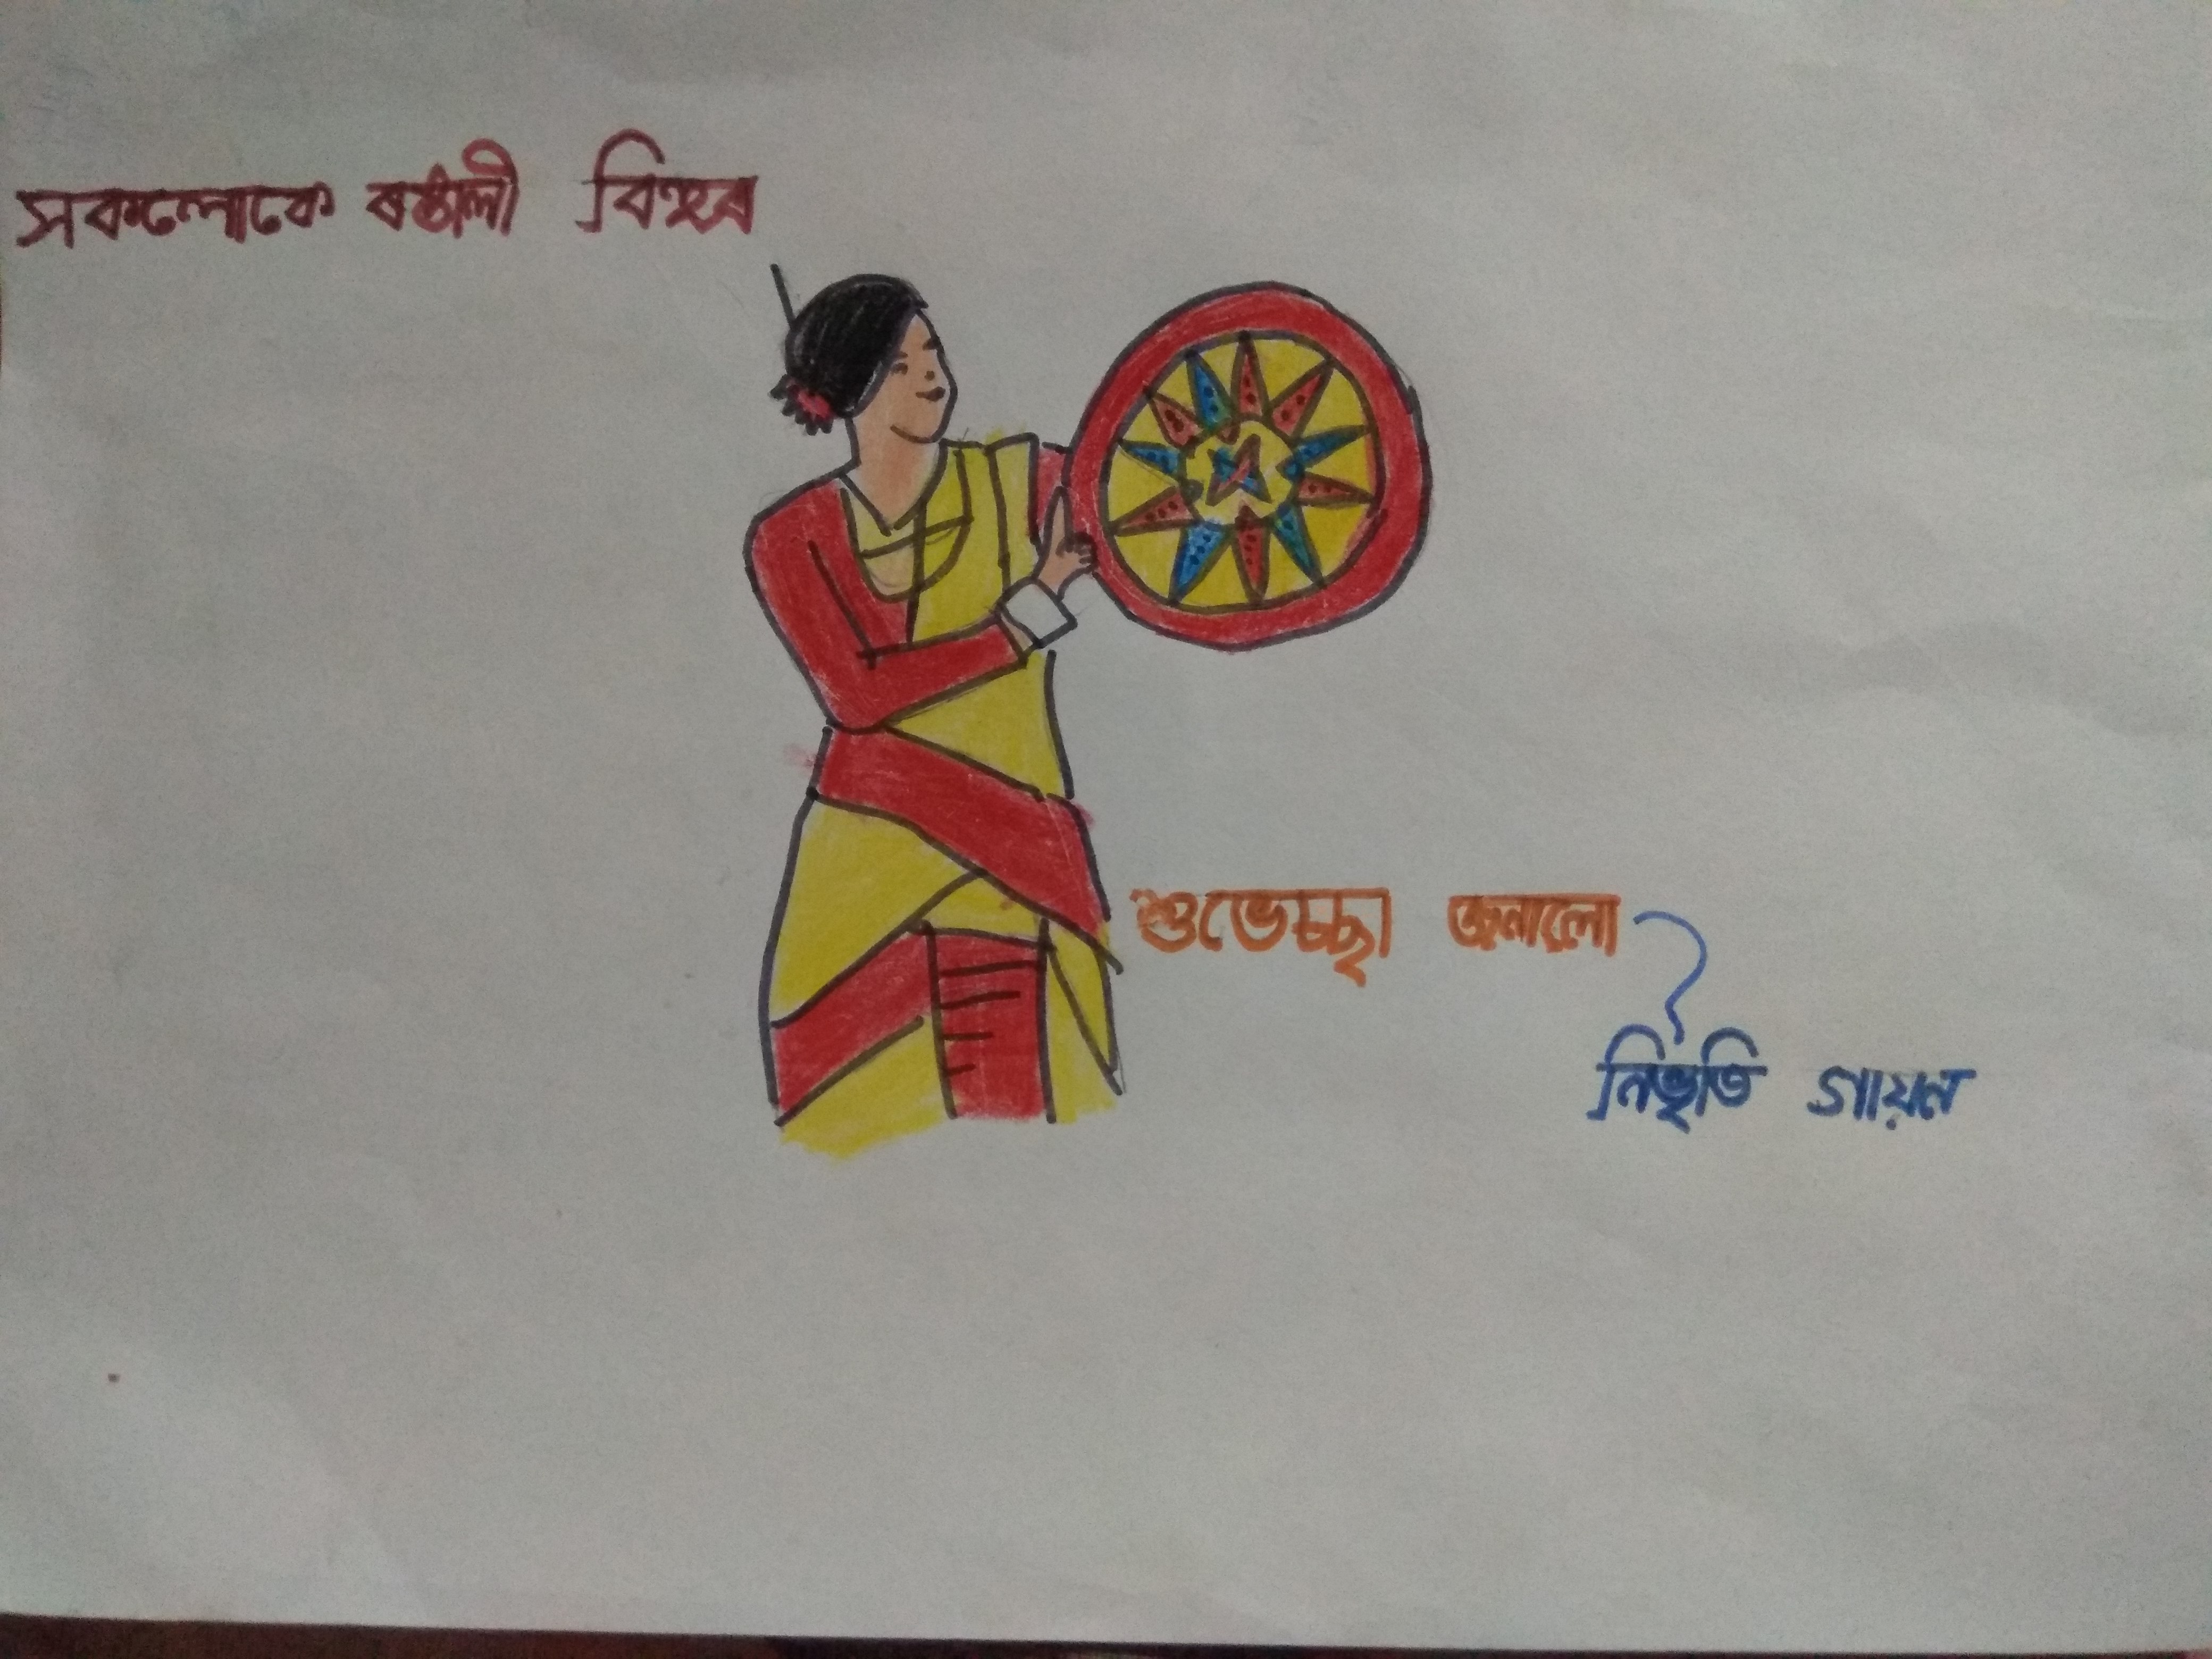 সকলোকে ৰঙালী বিহুৰ
শুভেচ্ছা জনালো
নিভৃতি গায়ন